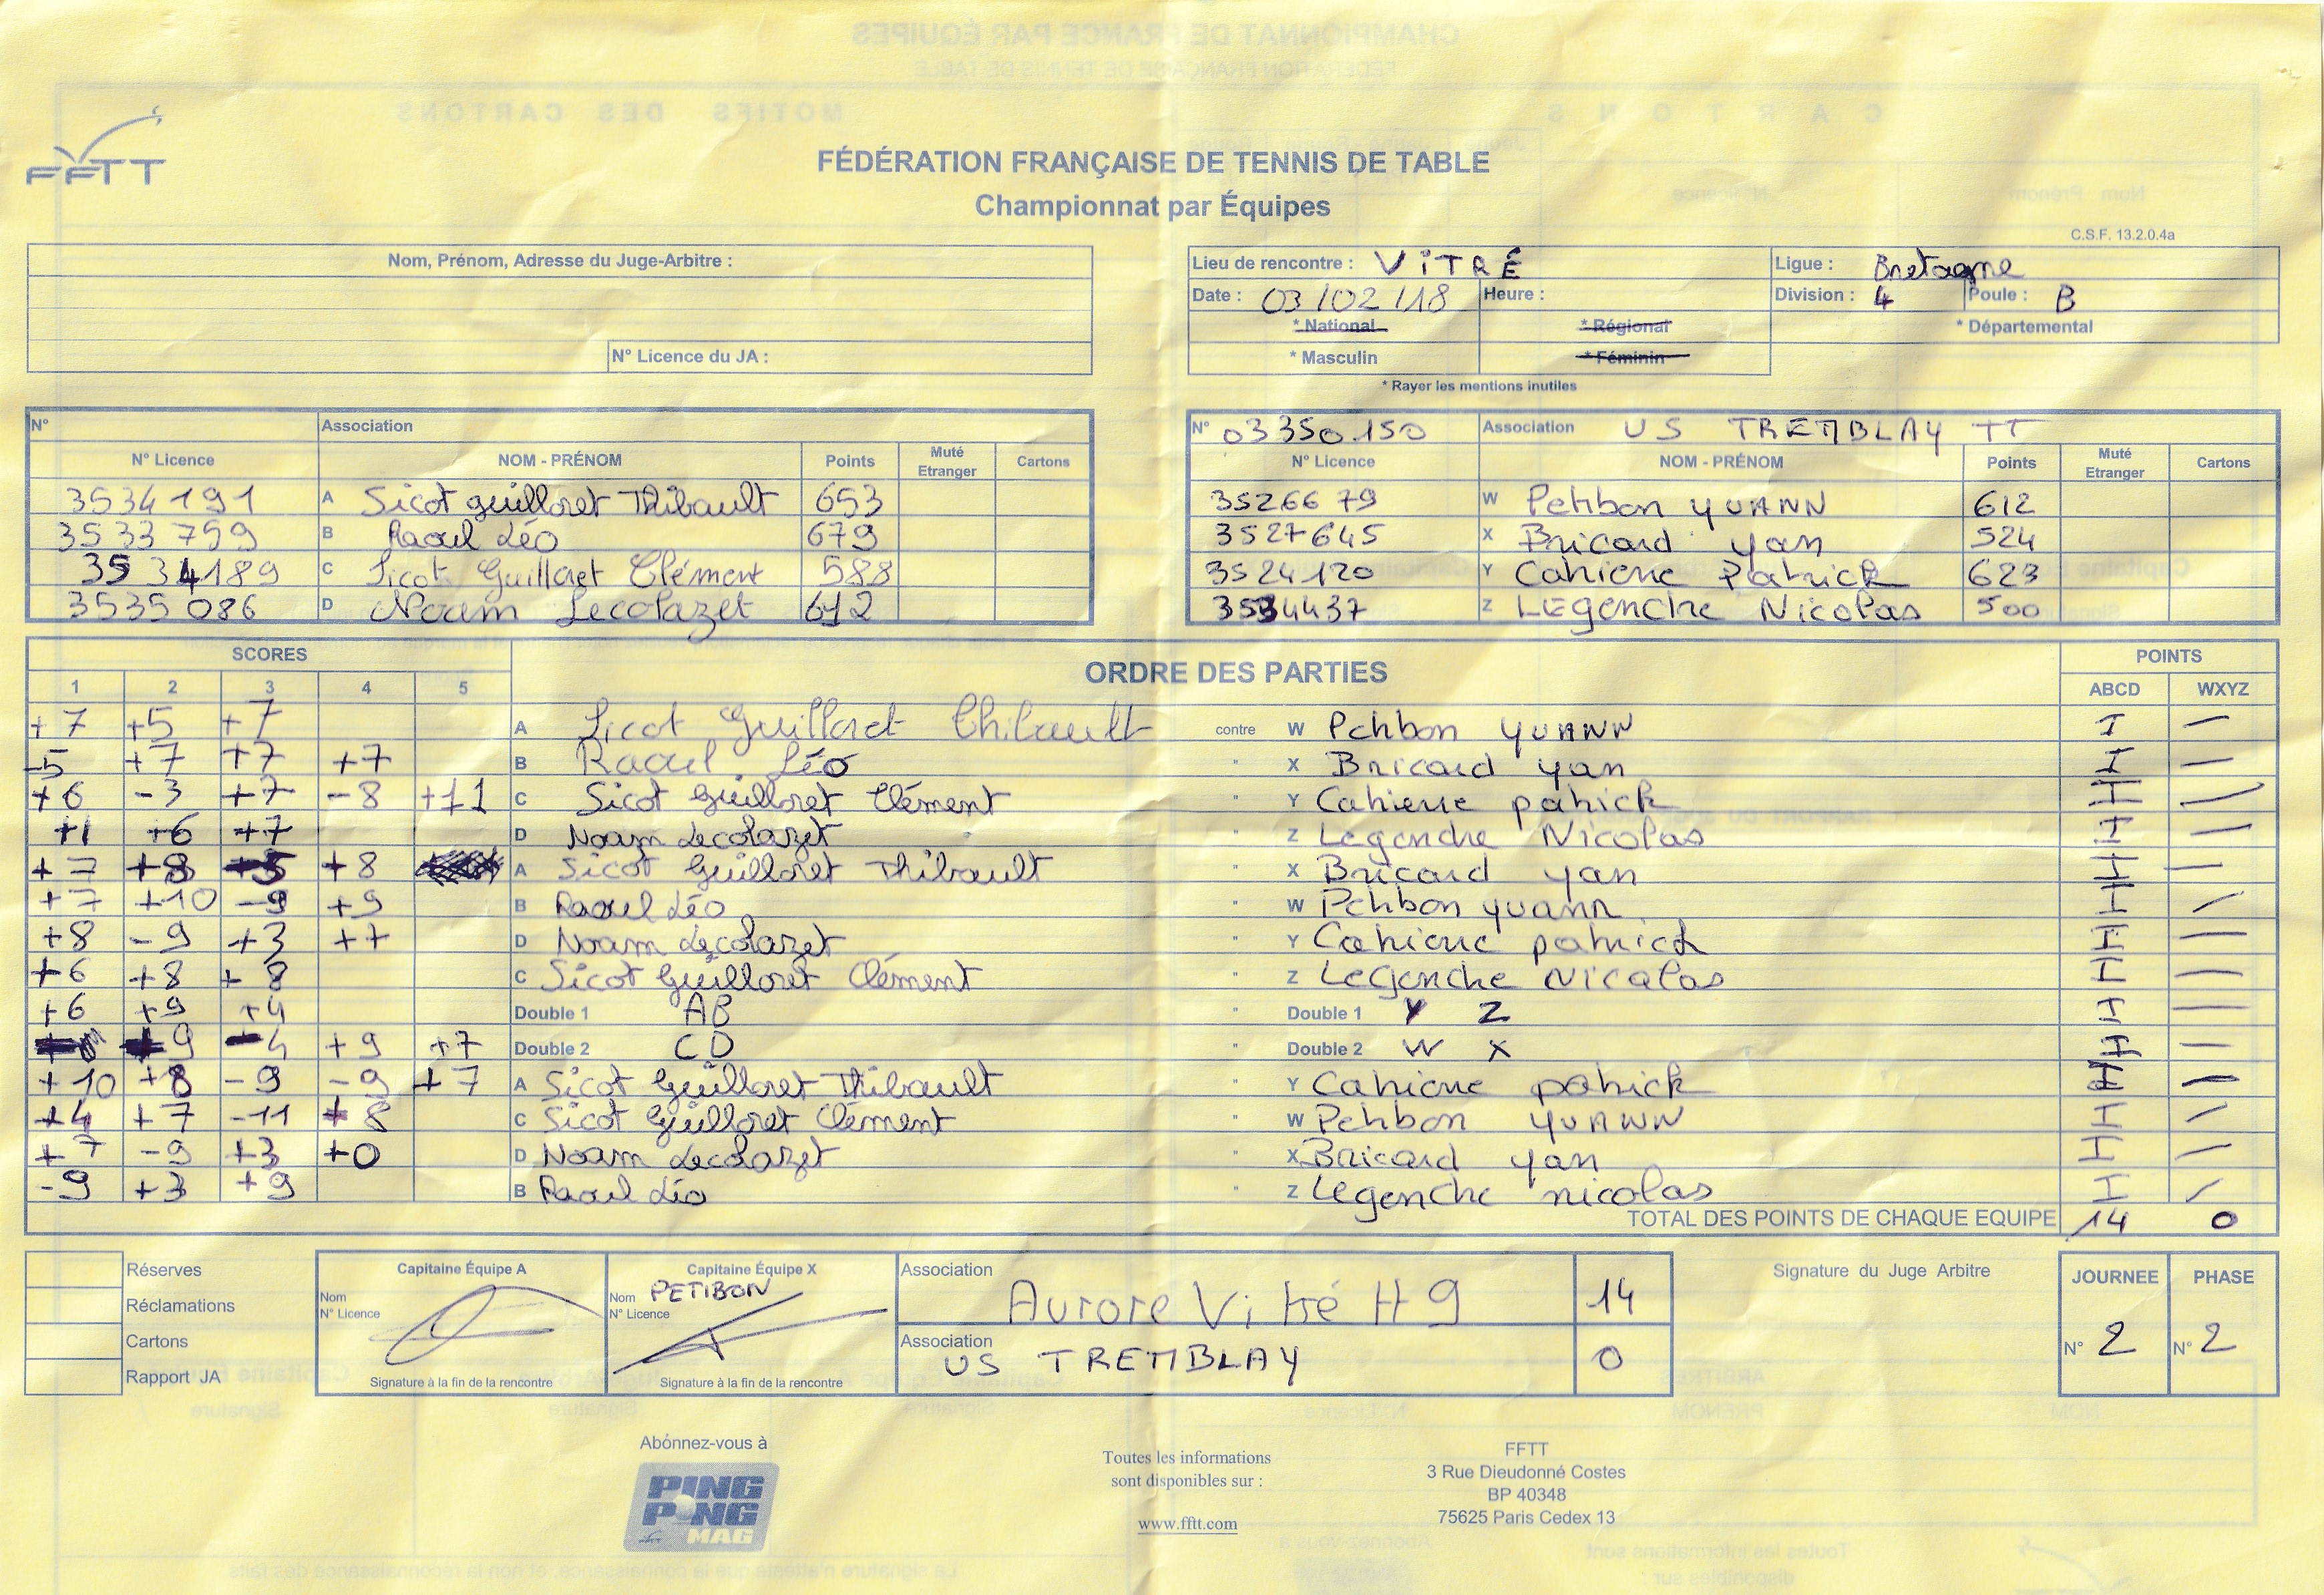 FFTT
FÉDÉRATION FRANÇAISE DE TENNIS DE TABLE
Championnat par Équipes
C.S.F. 13.2.0.4a
Nom, Prénom, Adresse du Juge-Arbitre :
N° Licence du JA :
Lieu de rencontre : VITRÉ Ligue : Bretagne
Date : 03/02/18 Heure : Division : 4 Poule : B
* National * Régional * Départemental
* Masculin * Féminin
* Rayer les mentions inutiles
N° Association
N° Licence NOM - PRÉNOM Points Muté Etranger Cartons
3534191 A Sicot Guilloret Thibault 653
3533759 B Raoul Léo 679
3534189 C Sicot Guilloret Clément 588
3535086 D Noam Lecolazet 612
N° 03350150 Association US TREMBLAY TT
N° Licence NOM - PRÉNOM Points Muté Etranger Cartons
3526679 W Petibon YUANN 612
3527645 X Bricard yan 524
3524120 Y Cahierre Patrick 623
3534437 Z LEgendre Nicolas 500
SCORES ORDRE DES PARTIES POINTS
1 2 3 4 5 ABCD WXYZ
+7 +5 +7 A Sicot Guilloret Thibault contre W Petibon YUANN I —
-5 +7 +7 +7 B Raoul Léo " X Bricard yan I —
+6 -3 +7 -8 +11 C Sicot Guilloret Clément " Y Cahierre patrick I —
+1 +6 +7 D Noam Lecolazet " Z Legendre Nicolas I —
+7 +8 +8 A Sicot Guilloret Thibault " X Bricard yan I —
+7 +10 -9 +9 B Raoul Léo " W Petibon yuann I —
+8 -9 +3 +7 D Noam Lecolazet " Y Cahierre patrick I —
+6 +8 +8 C Sicot Guilloret Clément " Z Legendre Nicolas I —
+6 +9 +4 Double 1 AB " Double 1 Y Z I —
9 -4 +9 +7 Double 2 CD " Double 2 W X I —
+10 +8 -9 -9 +7 A Sicot Guilloret Thibault " Y Cahierre patrick I —
+4 +7 -11 +8 C Sicot Guilloret Clément " W Petibon YUANN I —
+7 -9 +3 +0 D Noam Lecolazet " X Bricard yan I —
-9 +3 +9 B Raoul Léo " Z Legendre nicolas I —
TOTAL DES POINTS DE CHAQUE EQUIPE 14 0
Réserves
Réclamations
Cartons
Rapport JA
Capitaine Équipe A
Nom
N° Licence
Signature à la fin de la rencontre
Capitaine Équipe X
Nom PETIBON
N° Licence
Signature à la fin de la rencontre
Association Aurore Vitré H9 14
Association US TREMBLAY 0
Signature du Juge Arbitre
JOURNEE PHASE
N° 2 N° 2
Abonnez-vous à
PING PONG MAG
Toutes les informations
sont disponibles sur :
www.fftt.com
FFTT
3 Rue Dieudonné Costes
BP 40348
75625 Paris Cedex 13